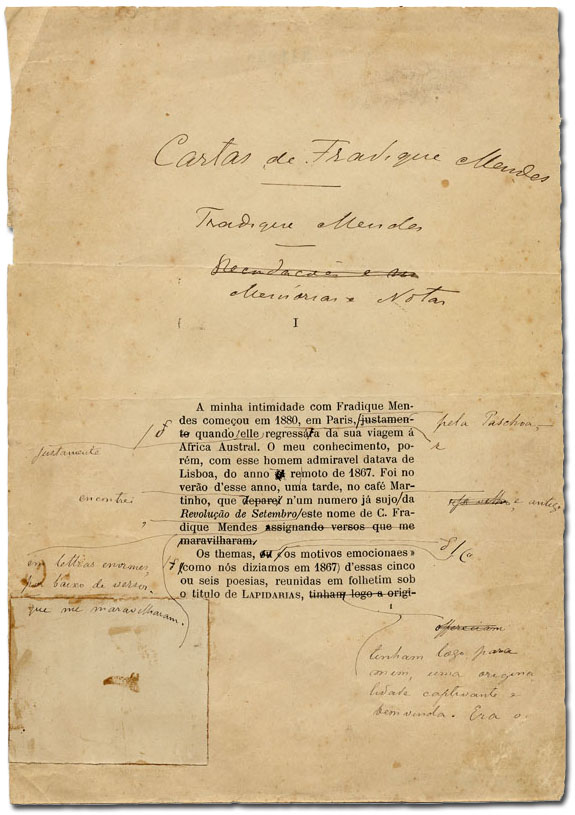 Cartas de Fradique Mendes
Fradique Mendes
Memorias e Notas
I
A minha intimidade com Fradique Men-
des começou em 1880, em Paris, justamen-
te quando elle regressára da sua viagem á
pela Paschoa,
Africa Austral. O meu conhecimento, po-
justamente
rém, com esse homem admiravel datava de
Lisboa, do anno remoto de 1867. Foi no
verão d'esse anno, uma tarde, no café Mar-
encontrei
tinho, que deparei n'um numero já sujo da
e antigo
Revolução de Setembro este nome de C. Fra-
dique Mendes assignando versos que me
maravilharam.
Os themas, ou os motivos emocionaes»
em lettras enormes,
(como nós diziamos em 1867) d'essas cinco
por baixo de versos
ou seis poesias, reunidas em folhetim sob
que me maravilharam.
o titulo de LAPIDARIAS, tinham logo a origi-
offereciam
tinham logo para
mim, uma origina
lidade captivante e
bemvinda. Era o